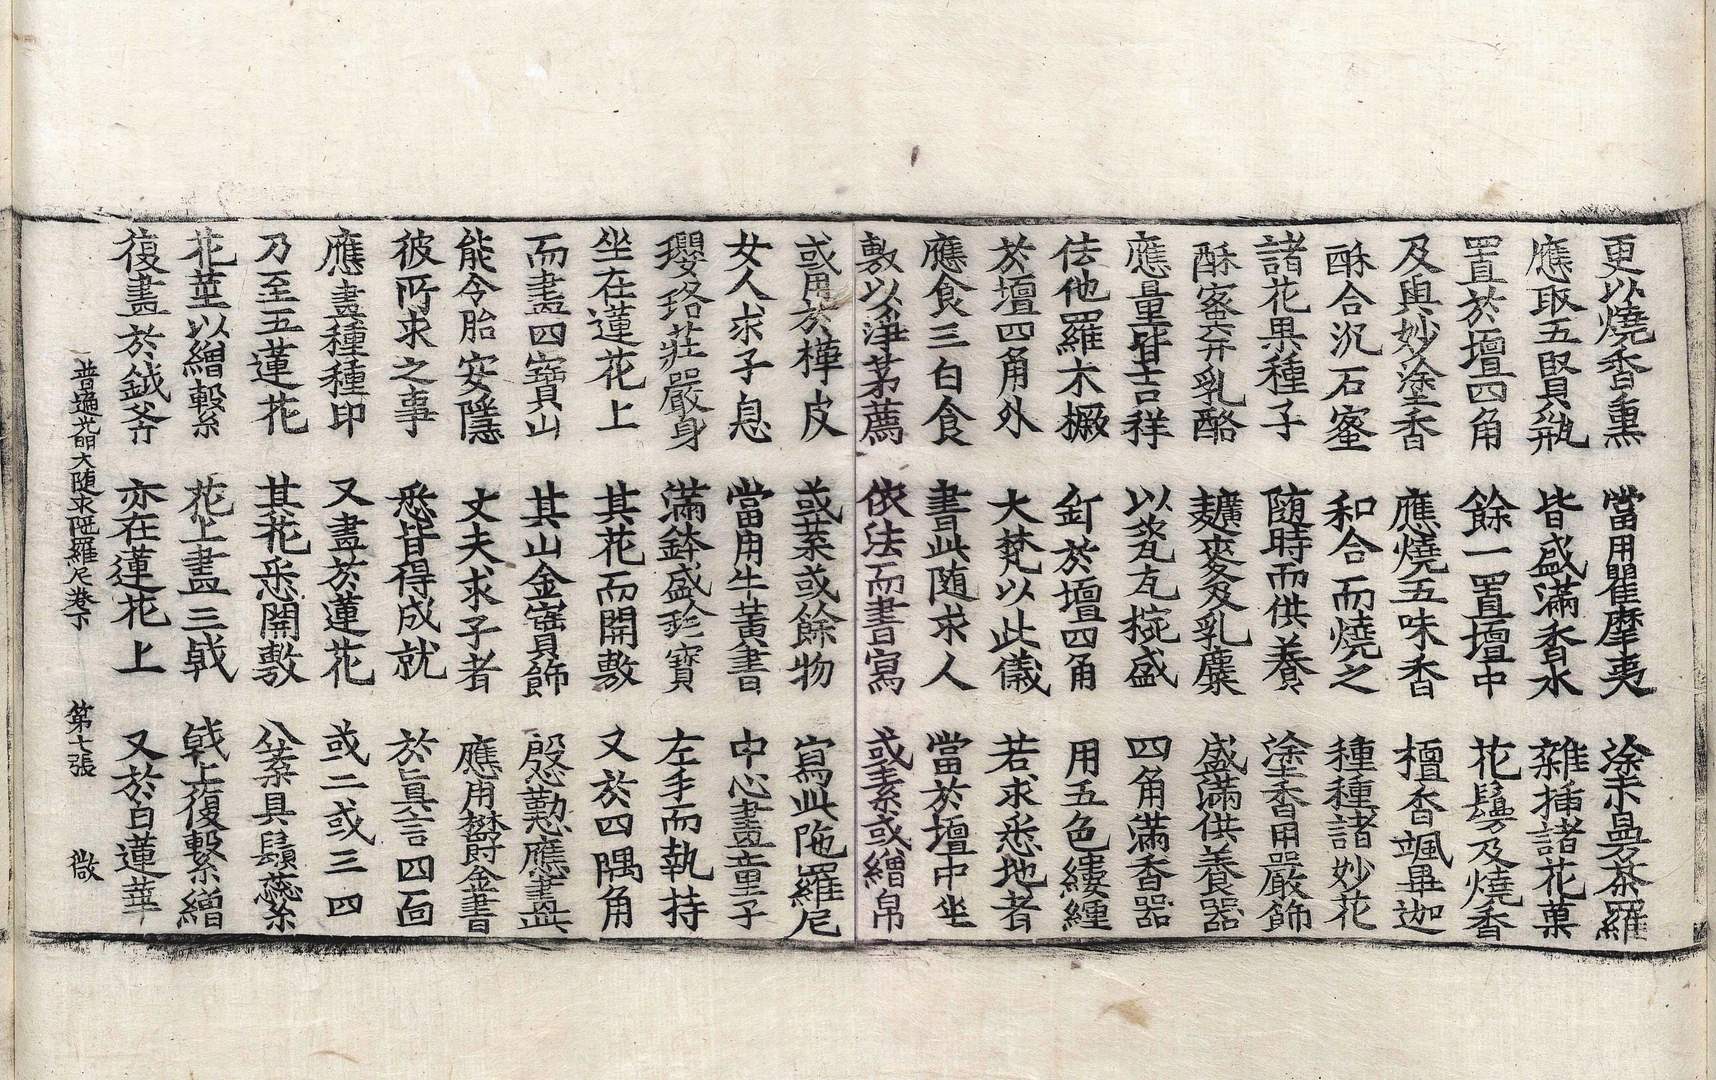 更以燒香熏 當用瞿摩夷 塗末曼荼羅
應取五賢瓶 皆盛滿香水 雜插諸花菓
置於壇四角 餘一置壇中 花鬘及燒香
及與妙塗香 應燒五味香 檀香颯畢迦
酥合沉石蜜 和合而燒之 種種諸妙花
諸花果種子 随時而供養 塗香用嚴飾
酥蜜并乳酪 麨麥及乳糜 盛滿供養器
應量皆吉祥 以瓷瓦椀盛 四角滿香器
佉他羅木橛 釘於壇四角 用五色縷纏
於壇四角外 大梵以此儀 若求悉地者
應食三白食 書此随求人 當於壇中坐
敷以淨茅薦 依法而書寫 或素或繒帛
或用於樺皮 或葉或餘物 寫此陁羅尼
女人求子息 當用牛黃書 中心畫童子
瓔珞莊嚴身 滿鉢盛珍寶 左手而執持
坐在蓮花上 其花而開敷 又於四隅角
而畫四寶山 其山金寶飾 慇懃應畫此
能令胎安隱 丈夫求子者 應用欝金書
彼所求之事 悉皆得成就 於真言四面
應畫種種印 又畫於蓮花 或二或三四
乃至五蓮花 其花悉開敷 八葉具鬚蘂
花莖以繒繫 花上畫三戟 戟上復繫繒
復畫於鉞斧 亦在蓮花上 又於白蓮華
普遍光明大随求陁羅尼卷下 第七張 㣲